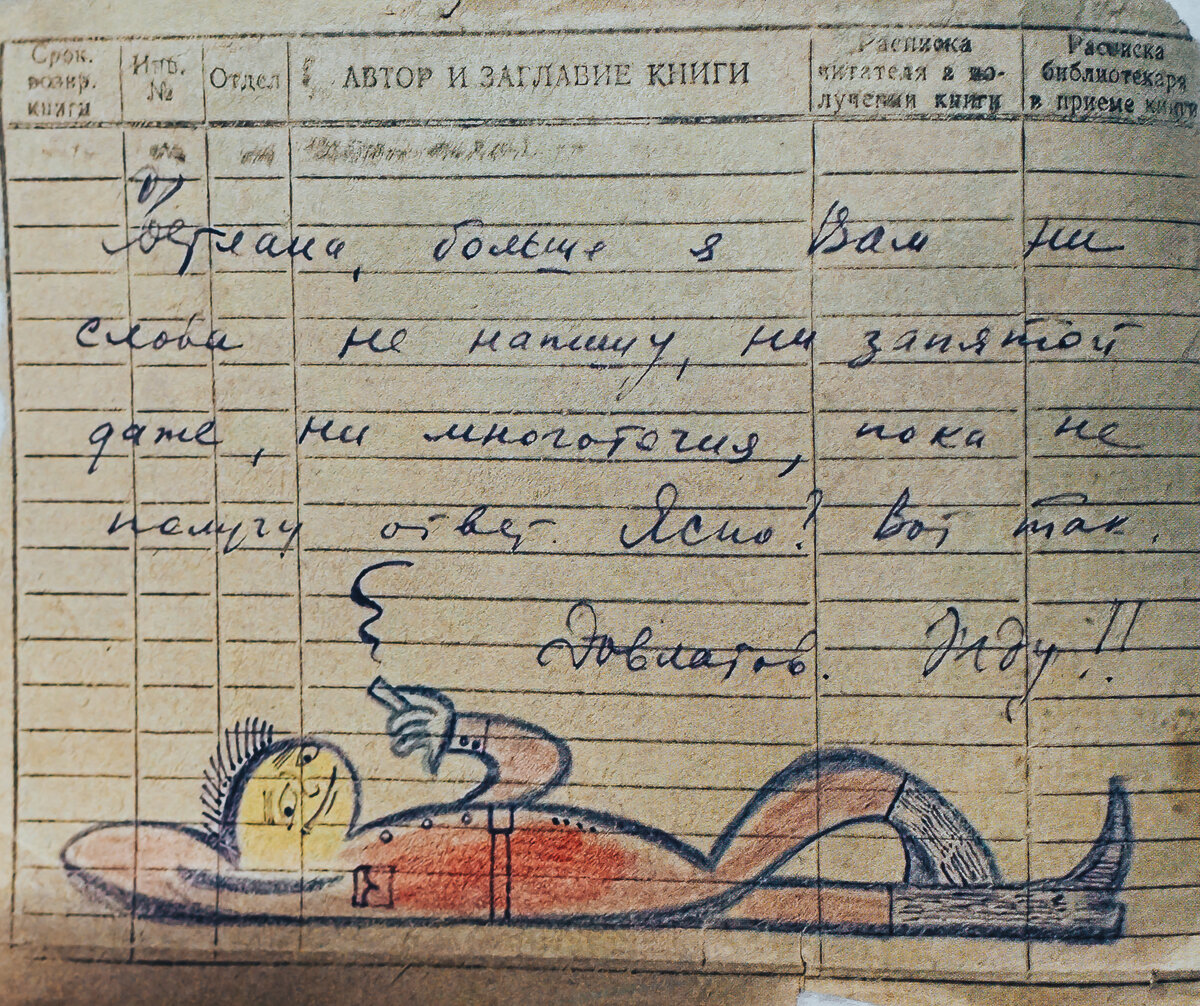 Срок. возвр. книги
Инв. №
Отдел
АВТОР И ЗАГЛАВИЕ КНИГИ
Расписка читателя в по-лучении книги
Расписка библиотекаря в приеме книги
Светлана, больше я Вам ни
слова не напишу, ни запятой
даже, ни многоточия, пока не
получу ответ. Ясно? Вот так.
Довлатов. Жду!!